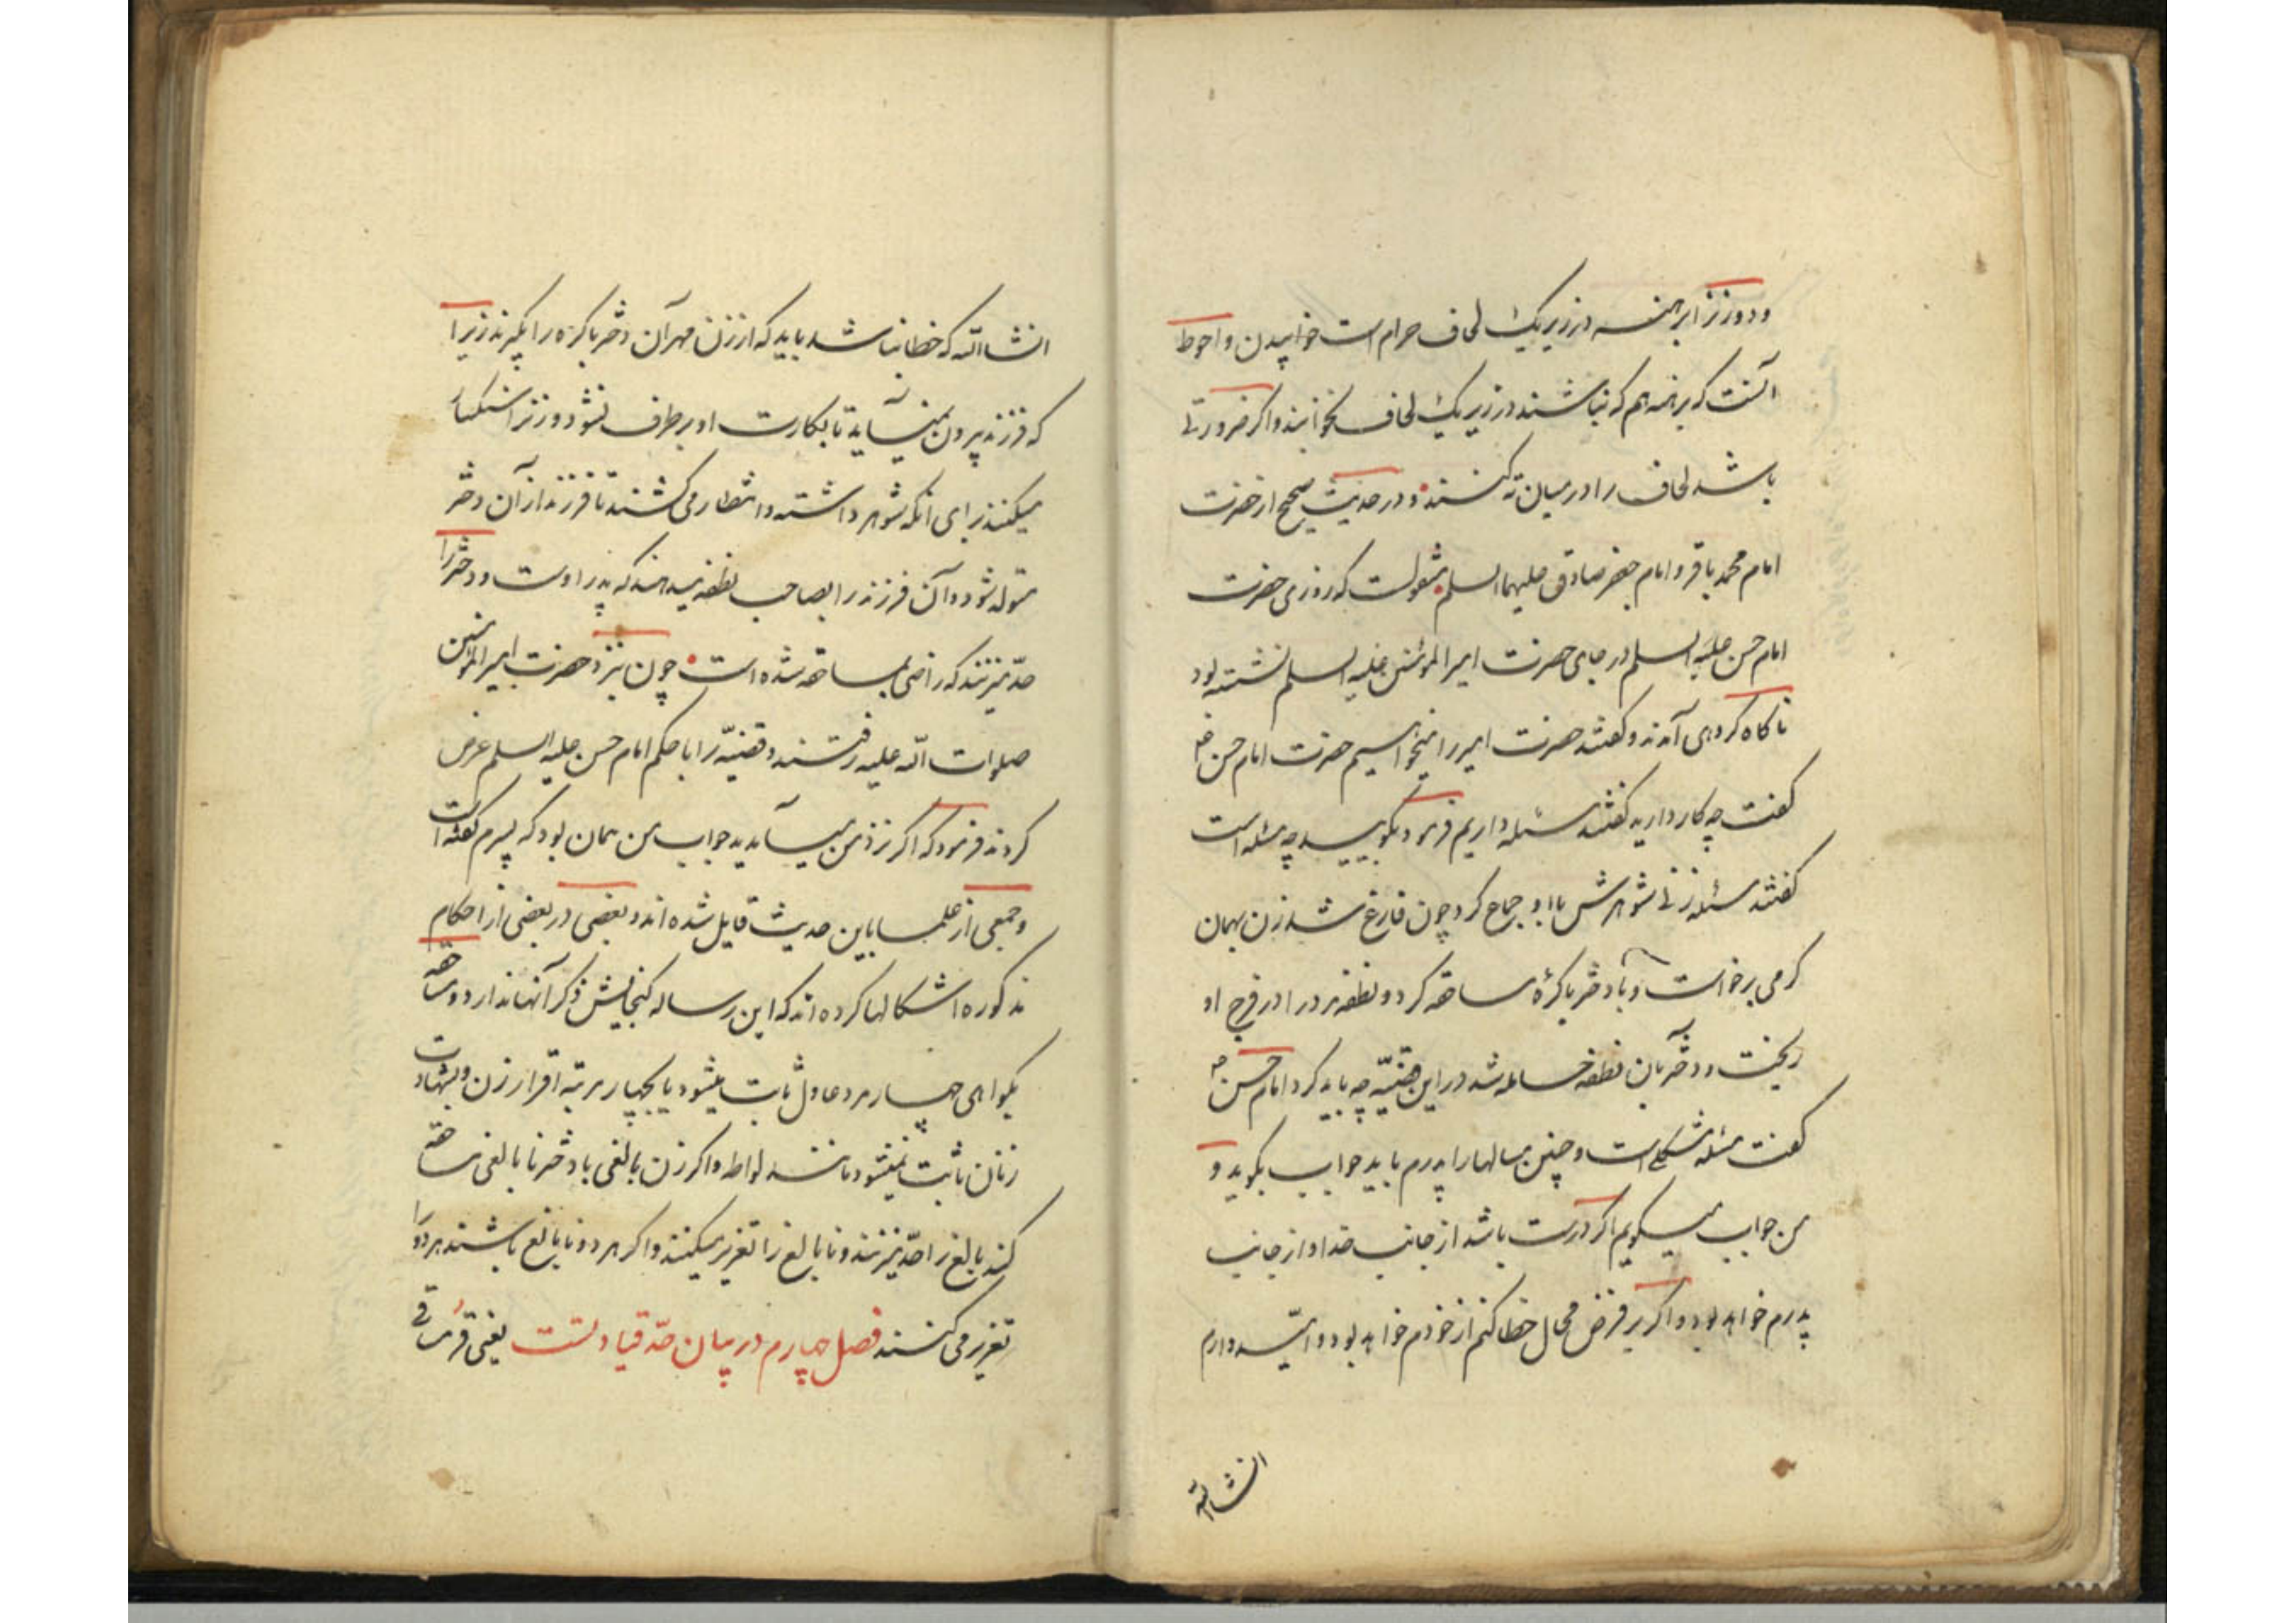 و دو زن را برهنه در زیر یک لحاف حرام است خوابیدن و احوط
آنست که برهنه هم که نباشند در زیر یک لحاف نخوابند و اکر ضرورتی
باشد لحاف را در میان ته کنند و در حدیث صحیح از حضرت
امام محمد باقر و امام جعفر صادق علیهما السلم منقولست که روزی حضرت
امام حسن علیه السلم در جای حضرت امیر المؤمنین علیه السلم نشسته بود
ناکاه کروهی آمدند و کفتند حضرت امیر را میخواهیم حضرت امام حسن ع
کفت چه کار دارید کفتند مسئله داریم فرمود بکویید چه مسئله است
کفتند مسئله زنی شوهرش با او جماع کرد چون فارغ شد زن بهمان
کرمی برخواست و با دختر باکرهٔ مساحقه کرد و نطفه مرد را در فرج او
ریخت و دختر بآن نطفه حامله شد در این قضیّه چه باید کرد امام حسن ع
کفت مسئله مشکلی است و چنین مسالها را پدرم باید جواب بکوید و
من جواب میکویم اکر درست باشد از جانب خدا و از جانب
پدرم خواهد بود و اکر بر فرض محال خطا کنم از خودم خواهد بود و امید دارم
انشاالله
انشاالله که خطا نباشد باید که از زن مهر آن دختر باکره را بکیرند زیرا
که فرزند بیرون نمیآید تا بکارت او برطرف نشود و زن را سنکسار
میکنند برای آنکه شوهر داشته و انتظار می کشند تا فرزند از آن دختر
متولد شود و آن فرزند را بصاحب نطفه میدهند که پدر اوست و دختر را
حدّ میزنند که راضی بمساحقه شده است چون بنزد حضرت امیر المؤمنین
صلوات الله علیه رفتند و قضیّه را با حکم امام حسن علیه السلم عرض
کردند فرمود که اکر نزد من میآمدید جواب من همان بود که پسرم کفته است
و جمعی از علما باین حدیث قایل شده اند و بعضی در بعضی از احکام
مذکوره اشکالها کرده اند که این رساله کنجایش ذکر آنها ندارد و مساحقه
بکواهی چهار مرد عادل ثابت میشود یا بچهار مرتبه اقرار زن و بشهادت
زنان ثابت نمیشود مانند لواط و اکر زن بالغی با دختر نابالغی مساحقه
کند بالغ را حدّ میزنند و نابالغ را تعزیر میکنند و اکر هر دو نابالغ باشند هر دو را
تعزیر می کنند فصل چهارم در بیان حدّ قیادتست یعنی قرمساقی